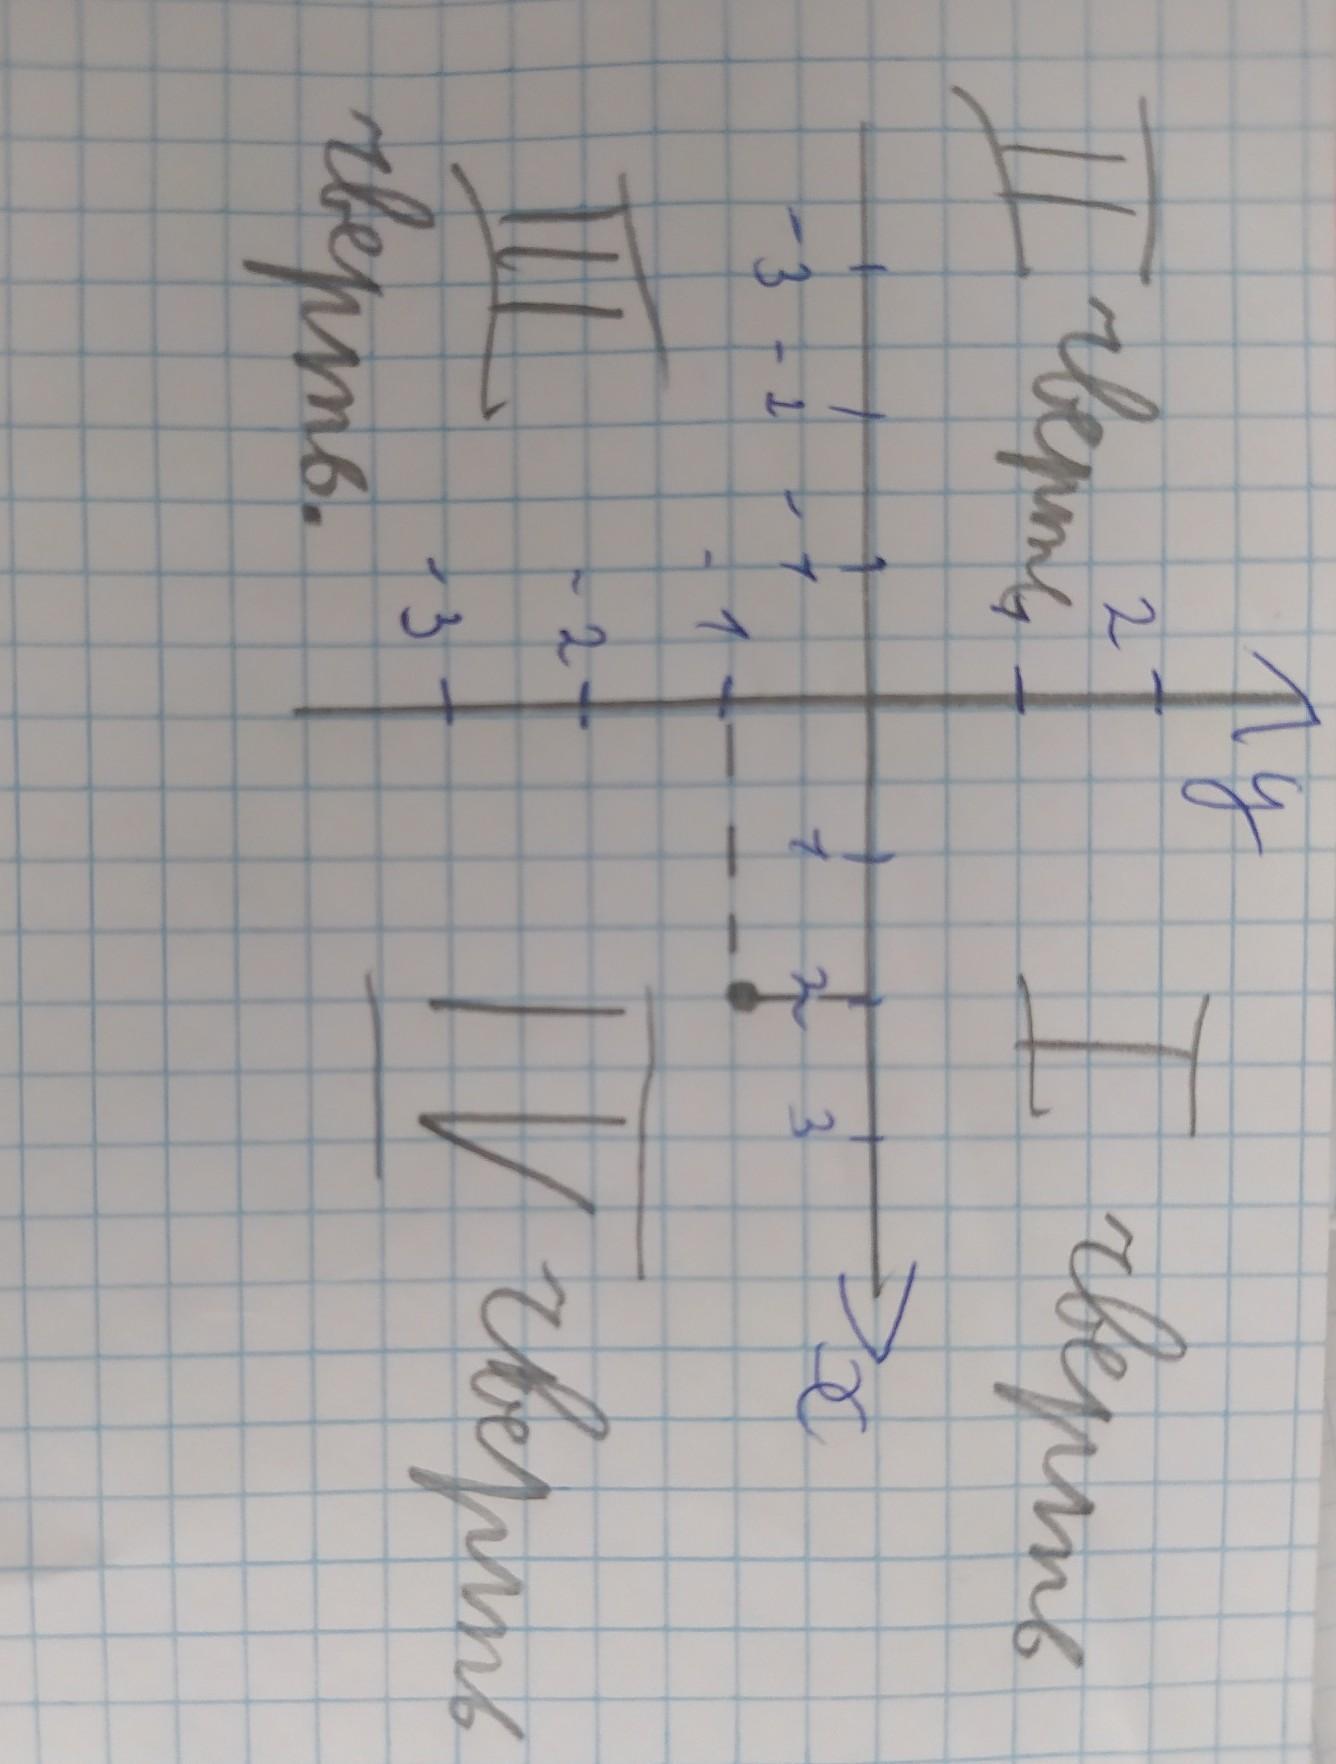 y
II чверть
I чверть
2
1
-3 -2 -1 1 2 3 x
-1
-2
-3
III
чверть.
IV чверть